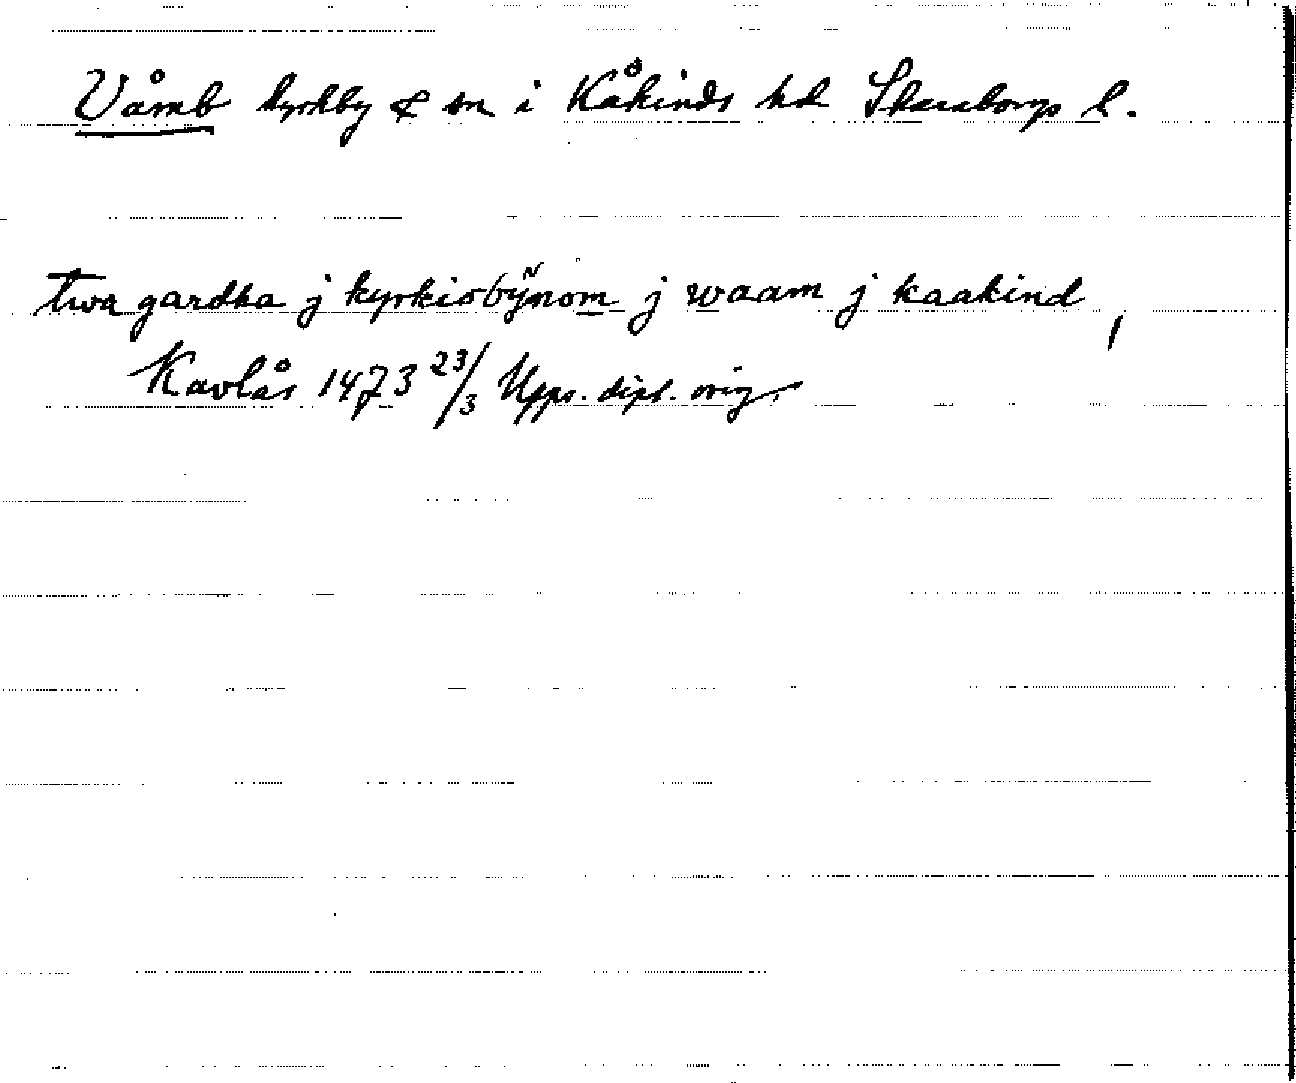 Våmb kyrkby & sn i Kåkinds hd Skaraborgs l.
twa gardha j kyrkiobÿnom j waam j kaakind,
Kavlås 1473 23/3 Upps. dipl. orig.